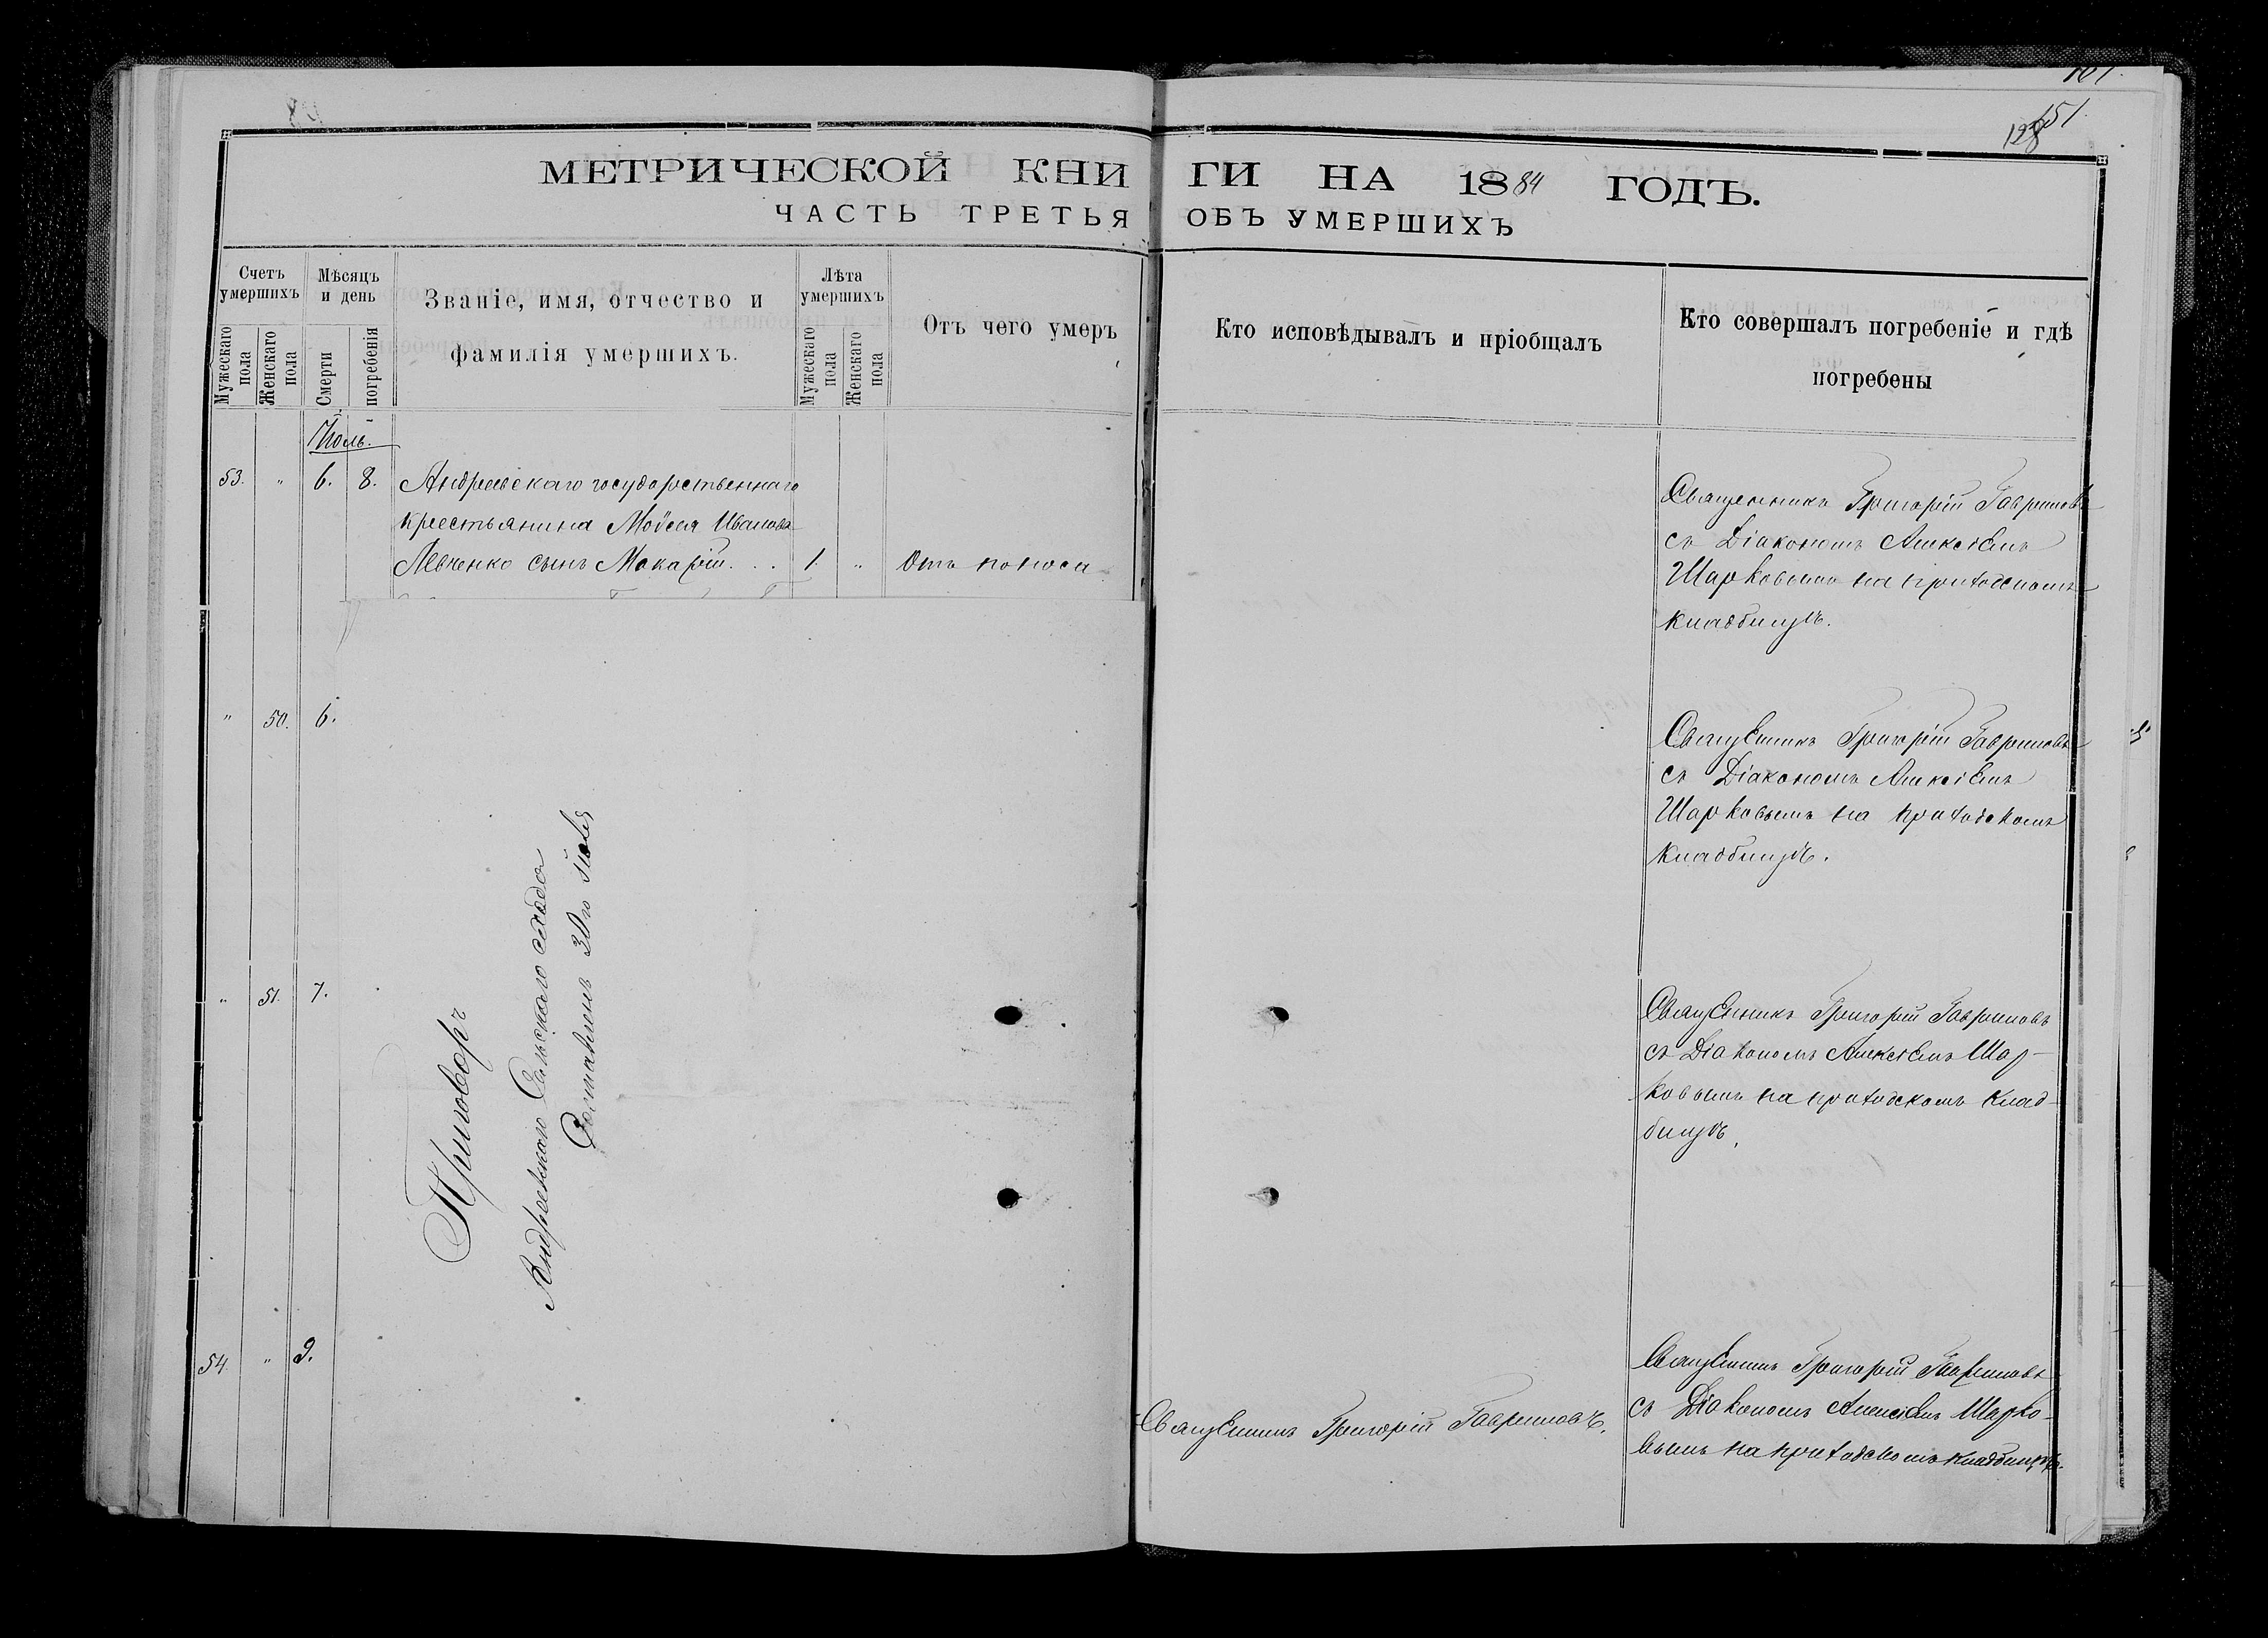 151.
128
МЕТРИЧЕСКОЙ КНИГИ НА 1884 ГОДЪ.
ЧАСТЬ ТРЕТЬЯ ОБЪ УМЕРШИХЪ
Счетъ умершихъ
Мужескаго пола
Женскаго пола
Мѣсяцъ и день
Смерти
погребенія
Званіе, имя, отчество и
фамилія умершихъ.
Лѣта умершихъ
Мужескаго пола
Женскаго пола
Отъ чего умеръ
Кто исповѣдывалъ и пріобщалъ
Кто совершалъ погребеніе и гдѣ
погребены
Іюль.
53. " 6. 8. Андреевскаго государственнаго
крестьянина Моѵсея Иванова
Левченко сынъ Макарій. . . 1. " Отъ поноса
Священникъ Григорій Гавриловъ
съ Діакономъ Алексіемъ
Шарковымъ на приходскомъ
кладбищѣ.
" 50. 6.
Священникъ Григорій Гавриловъ
съ Діакономъ Алексіемъ
Шарковымъ на приходскомъ
кладбищѣ.
" 51. 7.
Священникъ Григорій Гавриловъ
съ Діакономъ Алексіемъ Шар-
ковымъ на приходскомъ клад-
бищѣ.
54. " 9.
Священникъ Григорій Гавриловъ.
Священникъ Григорій Гавриловъ
съ Діакономъ Алексіемъ Шарко-
вымъ на приходскомъ кладбищѣ.
Приговоръ
Андреевскаго Сельскаго схода
30го